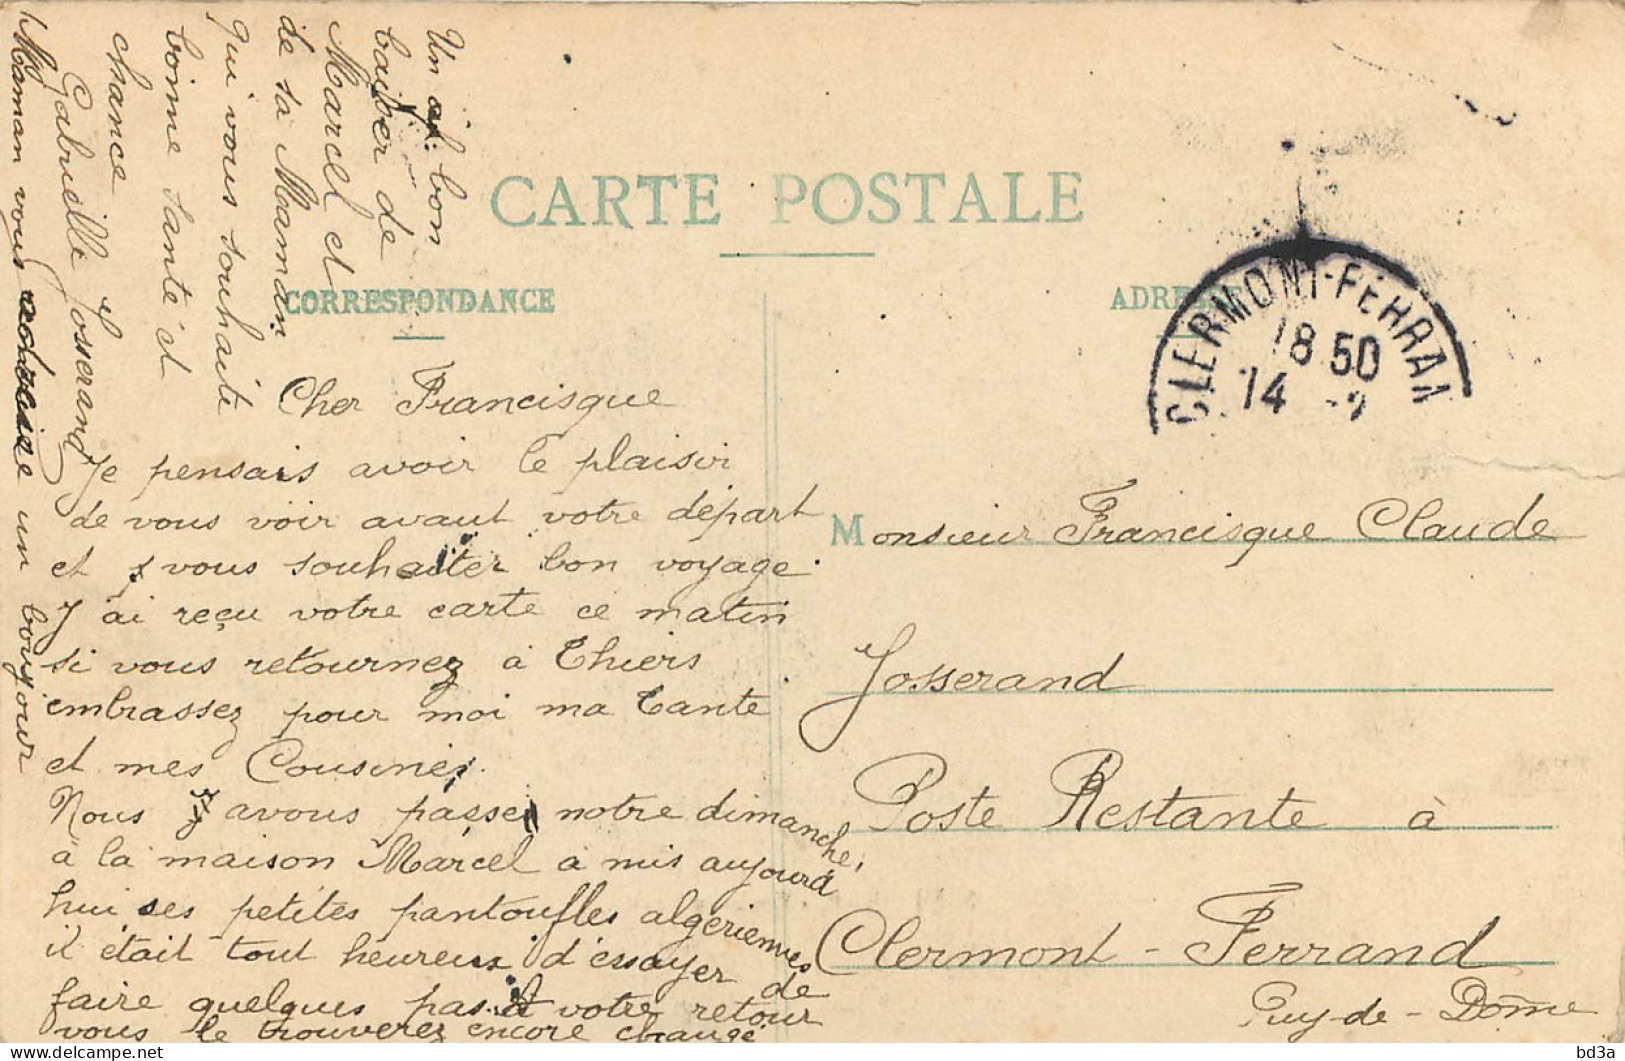 CARTE POSTALE
CORRESPONDANCE
ADRESSE
CLERMONT-FERRAN
18 50
14 -2
Cher Francisque
Je pensais avoir le plaisir
de vous voir avant votre départ
et vous souhaiter bon voyage.
J'ai reçu votre carte ce matin
si vous retournez à Thiers
embrassez pour moi ma Tante
et mes Cousines.
Nous avons passer notre dimanche
à la maison Marcel a mis aujourd
hui ses petites pantoufles algériennes
il était tout heureux d'essayer de
faire quelques pas à votre retour
vous le trouverez encore changé.
Un bon
baiser de
Marcel et
de sa Maman
qui vous souhaite
bonne santé et
chance
Gabrielle Josserand
Maman vous adresse un bonjour
Monsieur Francisque Claude
Josserand
Poste Restante à
Clermont-Ferrand
Puy-de-Dôme
bd3a